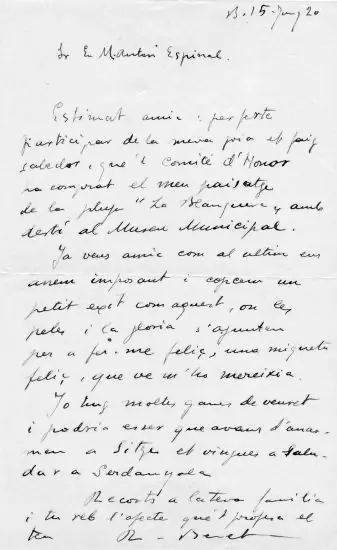 B. 15 Juny 20
Sr En M. Antoni Espinal.
Estimat amic: per ferte
participar de la meva joia et faig
sabedor, que'l Comité d'Honor
ha comprat el meu paisatge
de la pluja "La Blanquera" amb
destí al Museu Municipal.
Ja veus amic com al ultim ens
anem imposant i copsem un
petit exit com aquest, on les
peles i la gloria s'ajunten
per a fer-me feliç, una miqueta
feliç, que ve m'ho mereixia.
Jo tinc moltes ganes de veuret
i podria esser que avans d'anar-
men a Sitges et vingues a salu-
dar a Serdanyola
Recorts a lateva familia
i tu reb l'afecte que't profesa el
teu